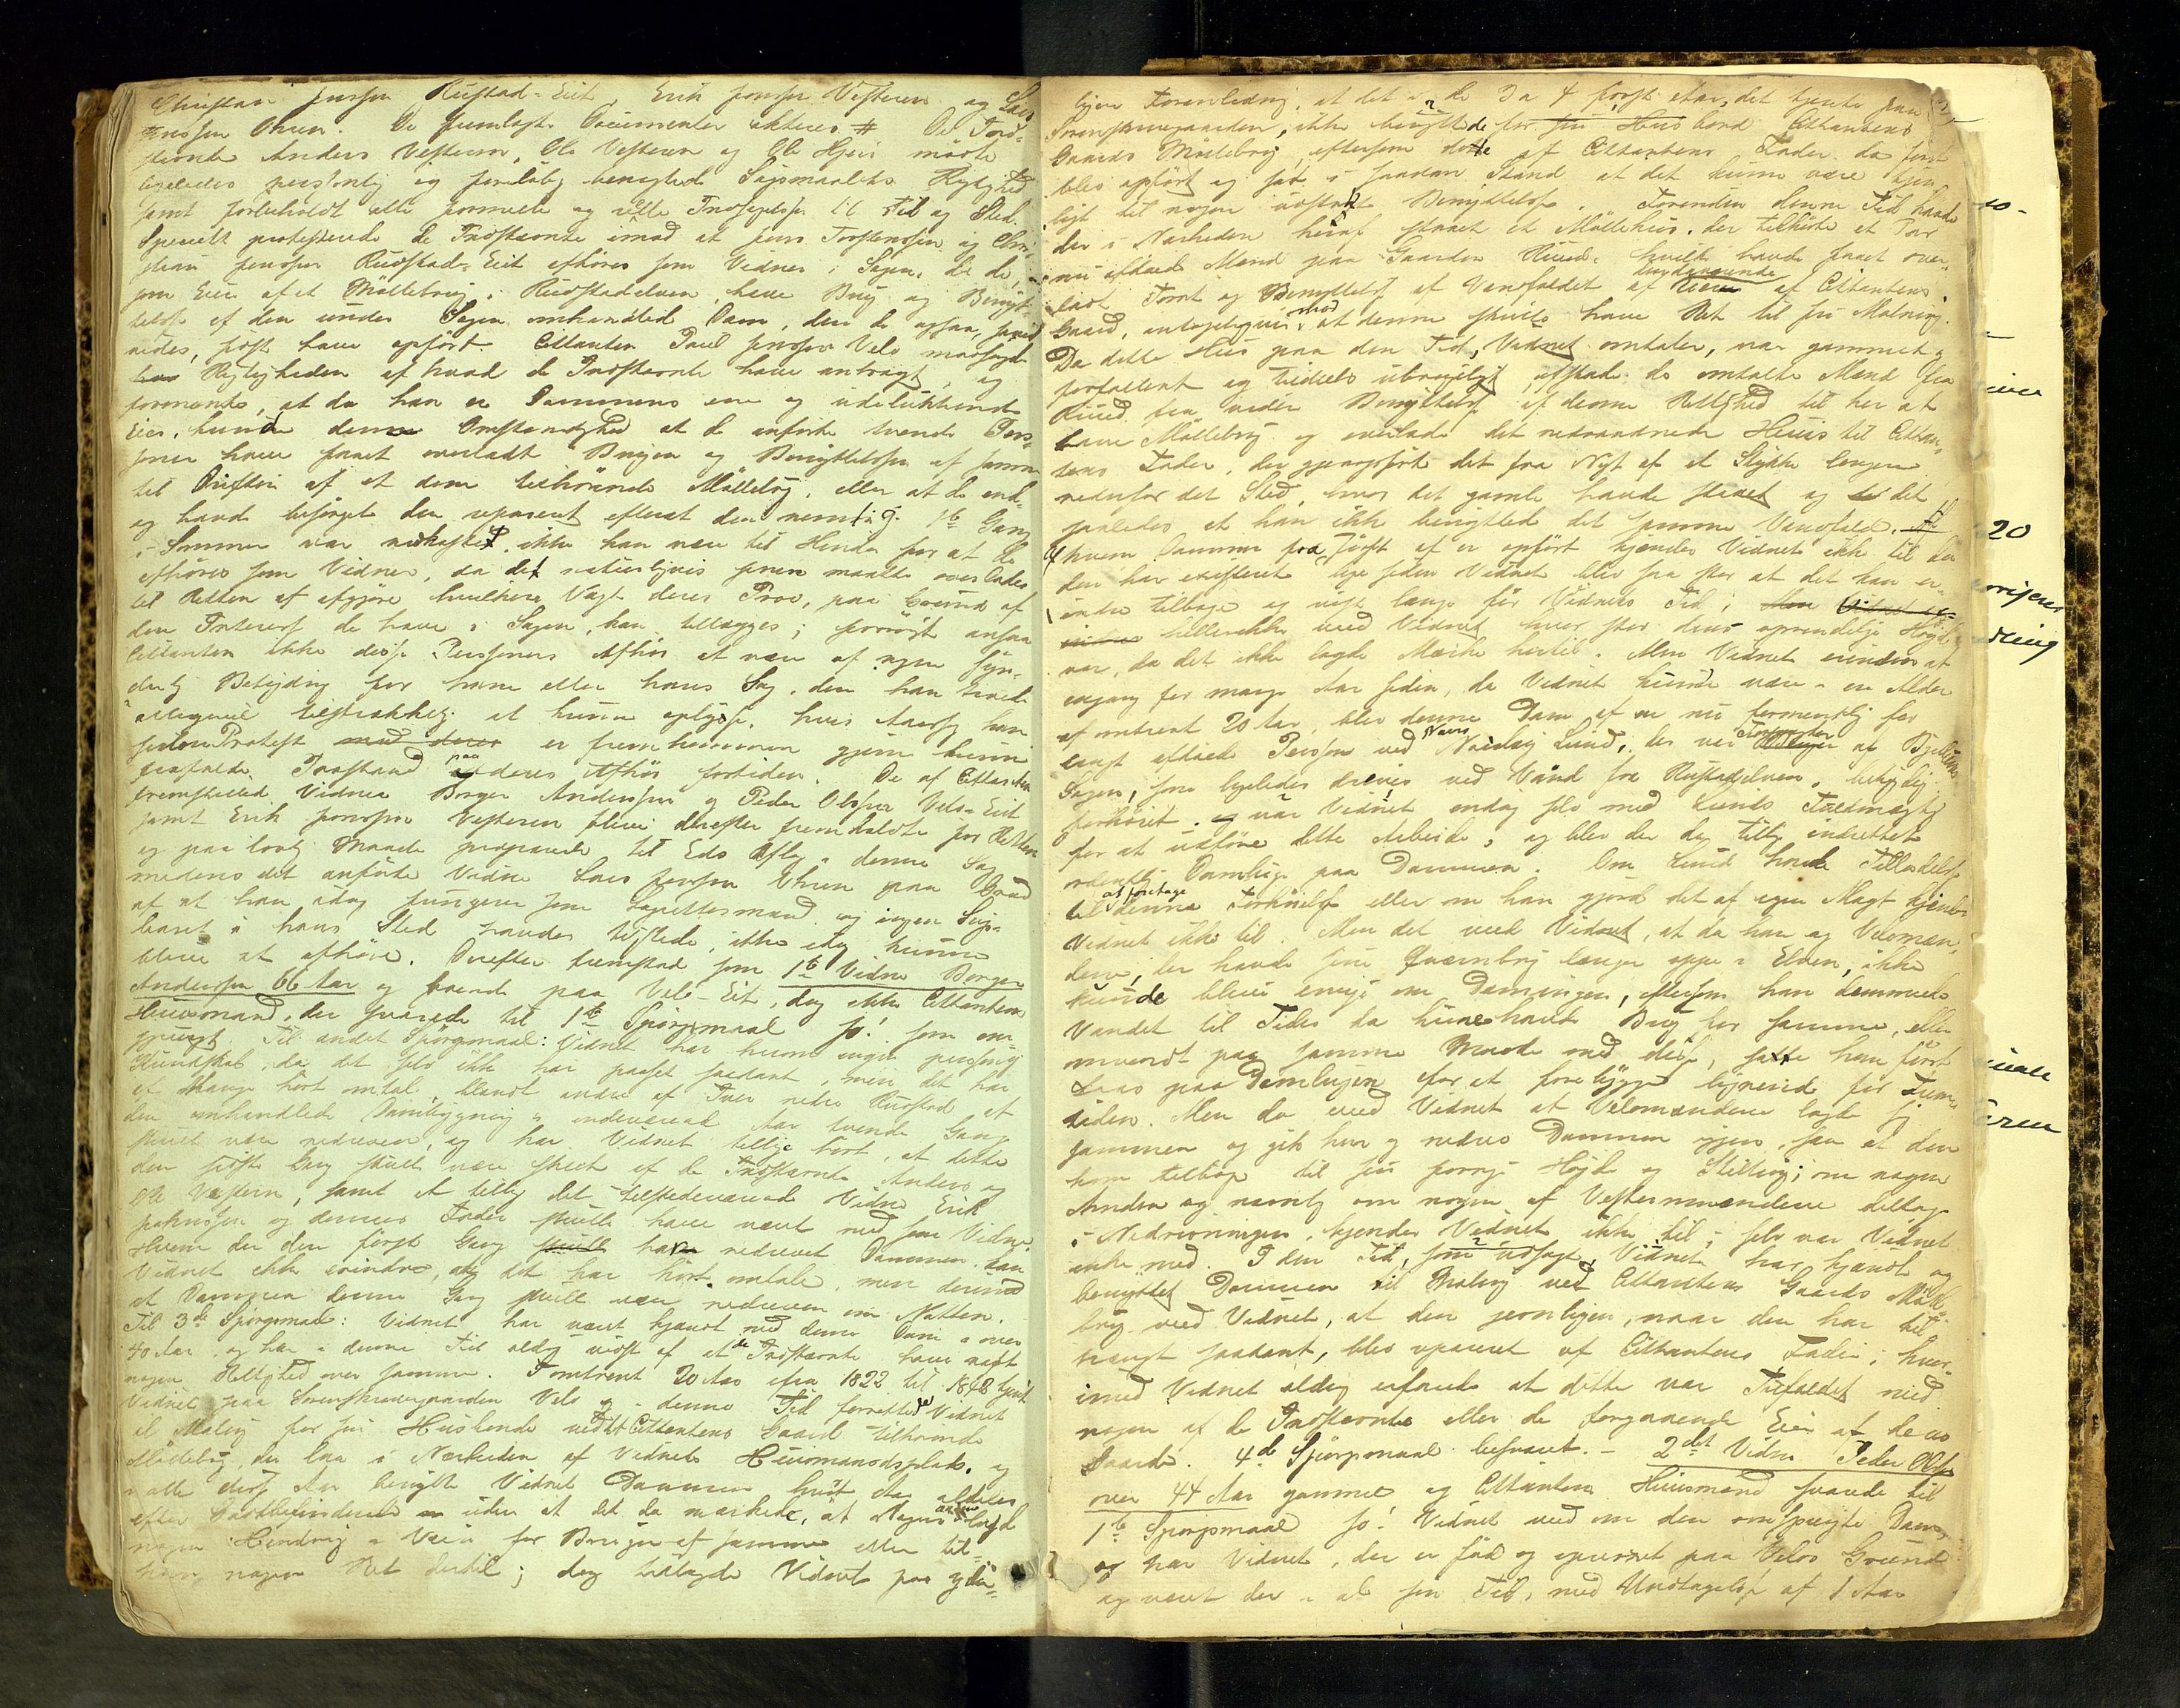 Christian Jensen Rustad-Eiet, Erik Jensen Vesteren og Lars
Jenssen Uhren. De fremlagte Documenter akteres. # De Ind-
stevnte Anders Vesteren, Ole Vesteren og Ole Hjeis mødte
ligeledes personlig og foreløbig benegtede Sagsmaalets Rigtighed
samt forbeholdt alle formelle og reelle Indsigelser til Tid og Sted.
Specielt protesterede de Indstevnte imod at Jens Torstensen og Chri-
stian Jensen Rustad-Eiet afhøres som Vidner i Sagen, da de,
som Eier af et Møllebrug i Rustadelven, have Brug og Benyt-
telse af den under Sagen omhandlede Dam, den de ogsaa,
nedes, selv have opført. Citanten Paul Jensen Velo modsagde
Rigtigheden af hvad de Indstevnte have andraget, og
formente, at da han er Dammens ene og udelukkende
Eier, kunde denne Omstændighed at de anførte tvende Per-
soner have faaet overladt Brugen og Benyttelsen af samme
til Driften af et dem tilhørende Møllebrug, eller at de end-
og havde besørget den repareret efterat den nemlig 1ste Gang
i Sommer var nedkastet, ikke kan være til Hinder for at de
afhøres som Vidner, da det naturligvis senere maatte overlades
til Retten at afgjøre hvilken Vægt deres Prov, paa Grund af
den Interesse de have i Sagen, kan tillægges; forøvrigt ansaa
Citanten ikke disse Personers Afhør at være af nogen syn-
derlig Betydning for ham eller hans Sag, den han troede
alligevel tilstrækkelig at kunne oplyse, hvis Aarsag han
siden Protest er fremkommen gjerne kunde
frafalde Paastand paa deres Afhør fortiden. De af Citanten
fremstillede Vidner Borger Andersen og Peder Olsen Velo-Eiet
samt Erik Jensen Vesteren bleve derefter fremkaldte for Retten
og paa lovlig Maade præparerede til Eds Aflæg i denne Sag
medens det anførte Vidne Lars Jensen Uhren paa Grund
af at han idag fungerer som Lagrettesmand og ingen Sup-
leant i hans Sted havdes tilstede, ikke idag kunde
blive at afhøre. Derefter fremstod som 1ste Vidne Borger
Andersen 66 Aar og boende paa Velo-Eiet, dog ikke Citantens
Huusmand, der svarede til 1ste Spørgsmaal Jo! som om-
spurgt. Til andet Spørgsmaal: Vidnet har herom ingen personlig
Kundskab, da det selv ikke har paaset saadant, men det har
af Mange hørt omtale, blandt andre af Iver nedre Rustad at
den omhandlede Dambygning i indeværende Aar tvende Gange
skulde være nedreven, og har Vidnet tillige hørt, at dette
den første Gang skulde være skeet af de Indstevnte Anders og
Ole Vesteren, samt at tillige det tilstedeværende Vidne Erik
Johnsen og dennes Fader skulle have været med som Vidne.
Hvem der den første Gang have nedrevet Dammen kan
Vidnet ikke erindre, at det har hørt omtale, men derimod
at Dammen denne Gang skulde være nedreven om Natten.
Til 3de Spørgsmaal: Vidnet har været kjendt med denne Dam i over
40 Aar, og har i denne Tid aldrig vidst af at de Indstevnte have nydt
nogen Rettighed over samme. I omtrent 20 Aar efra 1822 til 1842 tjente
Vidnet paa Sorenskrivergaarden Velo og i denne Tid forrettede Vidnet
al Maling for sin Husbonde ved et Citantens Gaard tilhørende
Møllebrug, der laa i Nærheden af Vidnets Huusmandsplads, og
i alle disse Aar benyttede Vidnet Dammen hvert Aar aldeles
efter Godtbefindende uden at det da mærkede, at Nogen anden lagde
nogen Hindring i Veien for Brugen af samme eller til-
havde nogen Ret dertil; dog tillagde Vidnet paa yder-
ligere Foranledning, at det i de 3 a 4 første Aar, det tjente paa
Sorenskrivergaarden, ikke benyttede for sin Husbond Citantens
Gaards Møllebrug, eftersom dette af Citantens Fader da først
blev opført og sat i saadan Stand at det kunde være tjen-
ligt til nogen udstrakt Benyttelse. Forinden denne Tid havde
der i Nærheden heraf staaet et Møllehuus, der tilhørte et Par
nu afdøde Mænd paa Gaarden Ruud, hvilke havde faaet over-
ladt Tomt og Benyttelse af Vandfaldet af daværende af Citantens
Gaard, antageligviis mod at denne skulde have Ret til fri Maling.
Da dette Huus paa den Tid, Vidnet omtaler, var gammelt og
forfaldent og tildeels ubrugeligt, afstod de omtalte Mænd fra
Ruud fra videre Benyttelse af denne Rettighed til her at
have Møllebrug og overlode det nedraadnede Huus til Citan-
tens Fader, der gjenopførte det fra Nyt af et Stykke længere
nedenfor det Sted, hvor det gamle havde staaet og det
saaledes at han ikke benyttede det samme Vandfald. Af
hvem Dammen fra Først af er opført kjender Vidnet ikke til da
den har existeret lige siden Vidnet blev saa stor at det kan er-
indre tilbage og vist længe før Vidnets Tid;
hellerikke veed Vidnet hvor stor dens oprindelige Høide
var, da det ikke lagde Mærke hertil. Men Vidnet erindrer at
engang for mange Aar siden, da Vidnet kunde være i en Alder
af omtrent 20 Aar, blev denne Dam af en nu formentlig for
længst afdøde Person ved Navn Lund, der var Forpagter af
Sagen, som ligeledes dreves ved Vand fra Rustadelven, betydelig
forhøiet. var Vidnet endog selv med Lunds Fuldmægtig
for at udføre dette Arbeide, og blev der dog tillige indrettet
ordentlig Damluge paa Dammen. Om Lund havde Tilladelse
til at foretage denne Forhøielse eller om han gjorde det af egen Magt kjender
Vidnet ikke til. Men det veed Vidnet, at da han og Velomæn-
dene, der havde sine Qværnbrug længer oppe i Elven, ikke
kunde blive enige om Damningen, eftersom han dæmmede
Vandet til Tider da hine havde Brug for samme, eller
omvendt paa samme Maade med disse, satte han først
Laas paa Damlugen for at forebygge lignende for Frem-
tiden. Men da veed Vidnet at Velomændene lagde sig
sammen og gik hen og nedrev Dammen igjen, saa at den
kom tilbage til sin forrige Høide og Stilling; om nogen
Anden og navnlig om nogen af Vestermændene deltog
i Nedrivningen, kjender Vidnet ikke til, selv var Vidnet
ikke med. I den Tid, som udsagt, Vidnet har kjendt og
benyttet Dammen til Maling ved Citantens Gaards Mølle-
brug veed Vidnet, at den jevnligen, naar den har til-
trængt saadant, blev repareret af Citantens Fader; hvor-
imod Vidnet aldrig erfarede at dette var Tilfældet med
nogen af de Indstevnte eller de forgaaende Eier af deres
Gaarde. 4de Spørgsmaal besvaret. – 2det Vidne Peder Olsen
over 44 Aar gammel og Citantens Huusmand svarede til
1ste Spørgsmaal Jo! Vidnet veed om den omspurgte Dam
og har Vidnet, der er fød og opvoxet paa Velos Grund
og været der i al sin Tid, med Undtagelse af 1 Aar
20